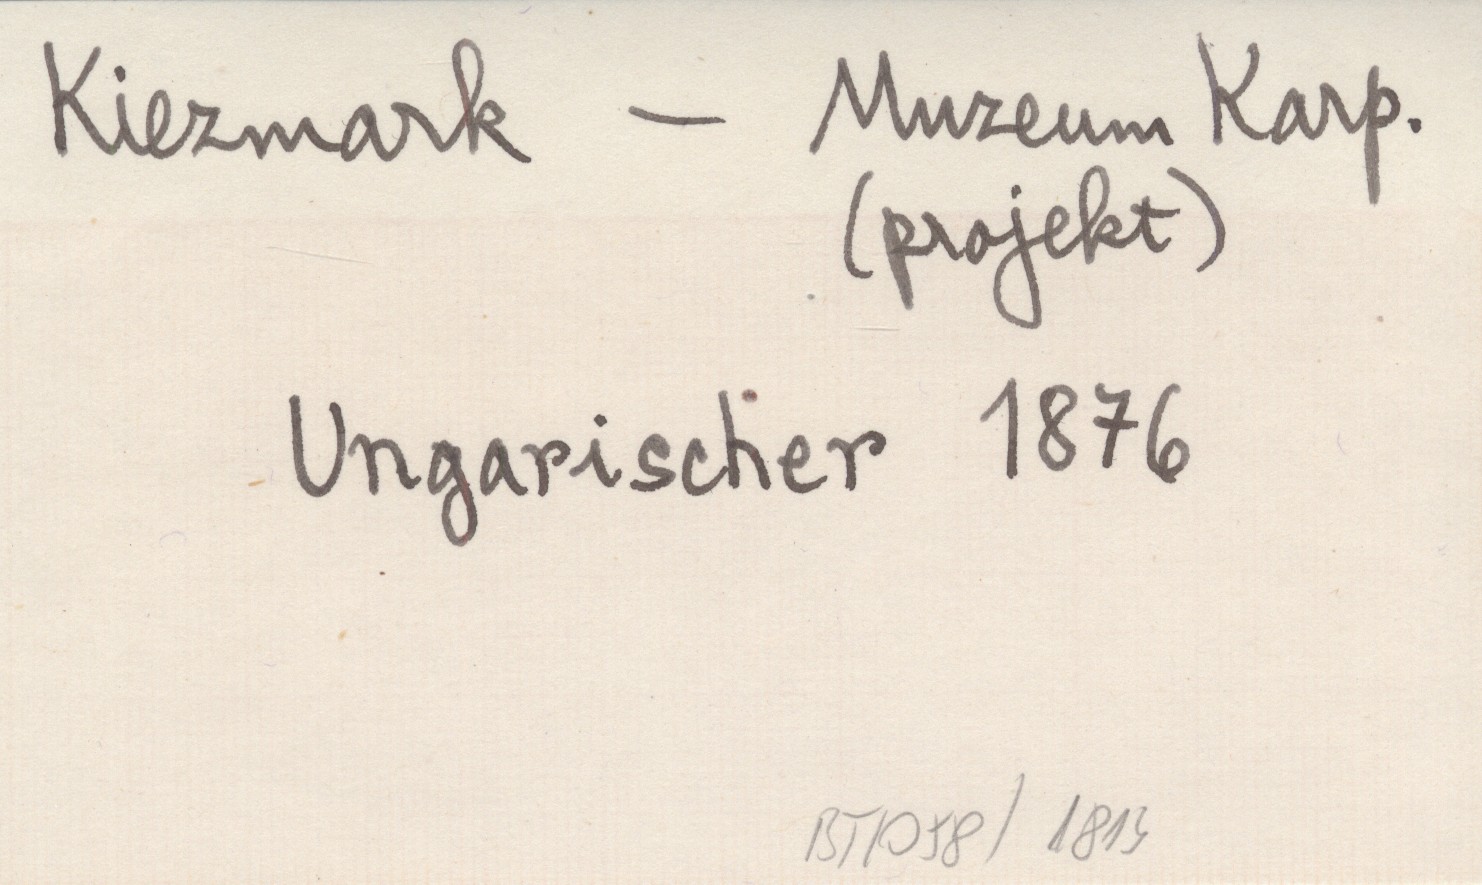 Kiezmark — Muzeum Karp.
(projekt)
Ungarischer 1876
BT/058/ 1813